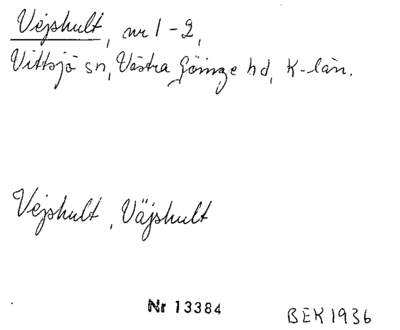 Vejshult, nr 1-2,
Vittsjö sn, Västra Göinge hd, K-län.
Vejshult, Väjshult
Nr 13384
BEK1936